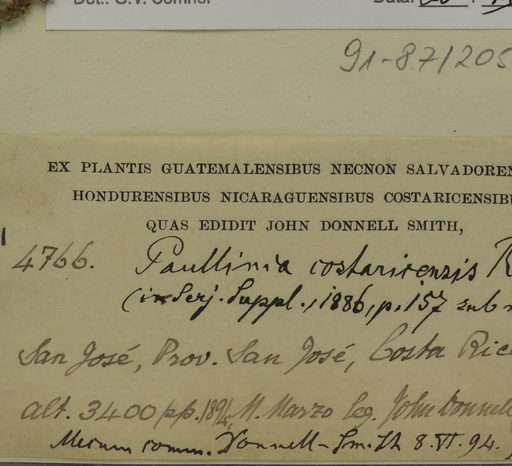 91-87/205
EX PLANTIS GUATEMALENSIBUS NECNON SALVADOREN
HONDURENSIBUS NICARAGUENSIBUS COSTARICENSIBU
QUAS EDIDIT JOHN DONNELL SMITH,
4766. Paullinia costaricensis R
(in Serj. Suppl., 1886, p. 157 sub n
San José, Prov. San José, Costa Rica
alt. 3400 pp. 1894, M. Marzo leg. John Donnell
Mecum comm. Donnell-Smith 8.VI.94.